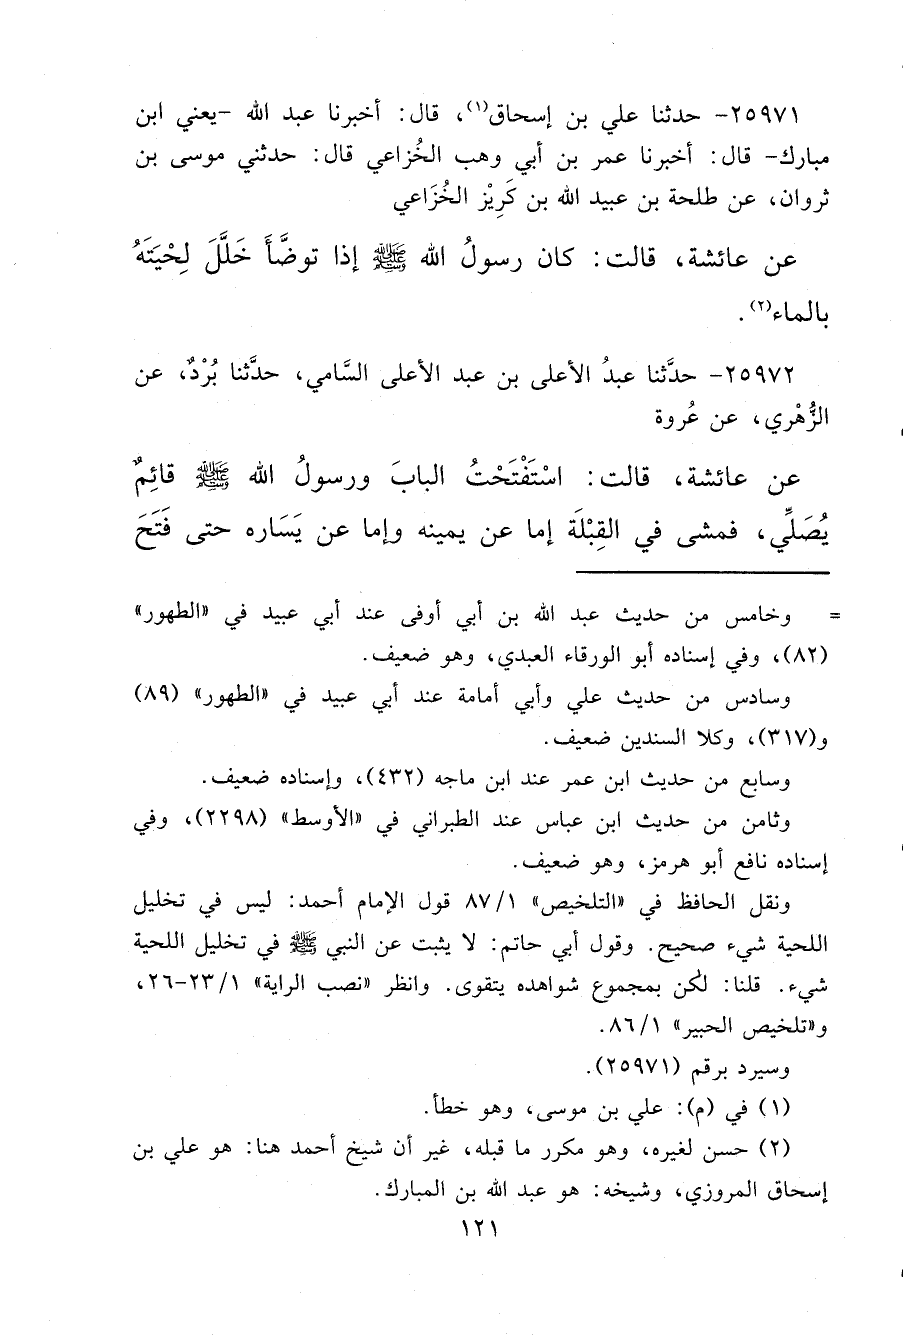 ٢٥٩٧١- حدثنا علي بن إسحاق(١)، قال: أخبرنا عبد الله -يعني ابن
مبارك- قال: أخبرنا عمر بن أبي وهب الخُزاعي قال: حدثني موسى بن
ثروان، عن طلحة بن عبيد الله بن كَرِيْز الخُزَاعي
عن عائشة، قالت: كان رسولُ الله ﷺ إذا توضَّأَ خَلَّلَ لِحْيَتَهُ
بالماء(٢).
٢٥٩٧٢- حدَّثنا عبدُ الأعلى بن عبد الأعلى السَّامي، حدَّثنا بُرْدٌ، عن
الزُّهْري، عن عُروة
عن عائشة، قالت: اسْتَفْتَحْتُ البابَ ورسولُ الله ﷺ قائِمٌ
يُصَلِّي، فمشى في القِبْلَة إما عن يمينه وإما عن يَسَاره حتى فَتَحَ
= وخامس من حديث عبد الله بن أبي أوفى عند أبي عبيد في «الطهور»
(٨٢)، وفي إسناده أبو الورقاء العبدي، وهو ضعيف.
وسادس من حديث علي وأبي أمامة عند أبي عبيد في «الطهور» (٨٩)
و(٣١٧)، وكلا السندين ضعيف.
وسابع من حديث ابن عمر عند ابن ماجه (٤٣٢)، وإسناده ضعيف.
وثامن من حديث ابن عباس عند الطبراني في «الأوسط» (٢٢٩٨)، وفي
إسناده نافع أبو هرمز، وهو ضعيف.
ونقل الحافظ في «التلخيص» ٨٧/١ قول الإمام أحمد: ليس في تخليل
اللحية شيء صحيح. وقول أبي حاتم: لا يثبت عن النبي ﷺ في تخليل اللحية
شيء. قلنا: لكن بمجموع شواهده يتقوى. وانظر «نصب الراية» ٢٣/١-٢٦،
و«تلخيص الحبير» ٨٦/١.
وسيرد برقم (٢٥٩٧١).
(١) في (م): علي بن موسى، وهو خطأ.
(٢) حسن لغيره، وهو مكرر ما قبله، غير أن شيخ أحمد هنا: هو علي بن
إسحاق المروزي، وشيخه: هو عبد الله بن المبارك.
١٢١